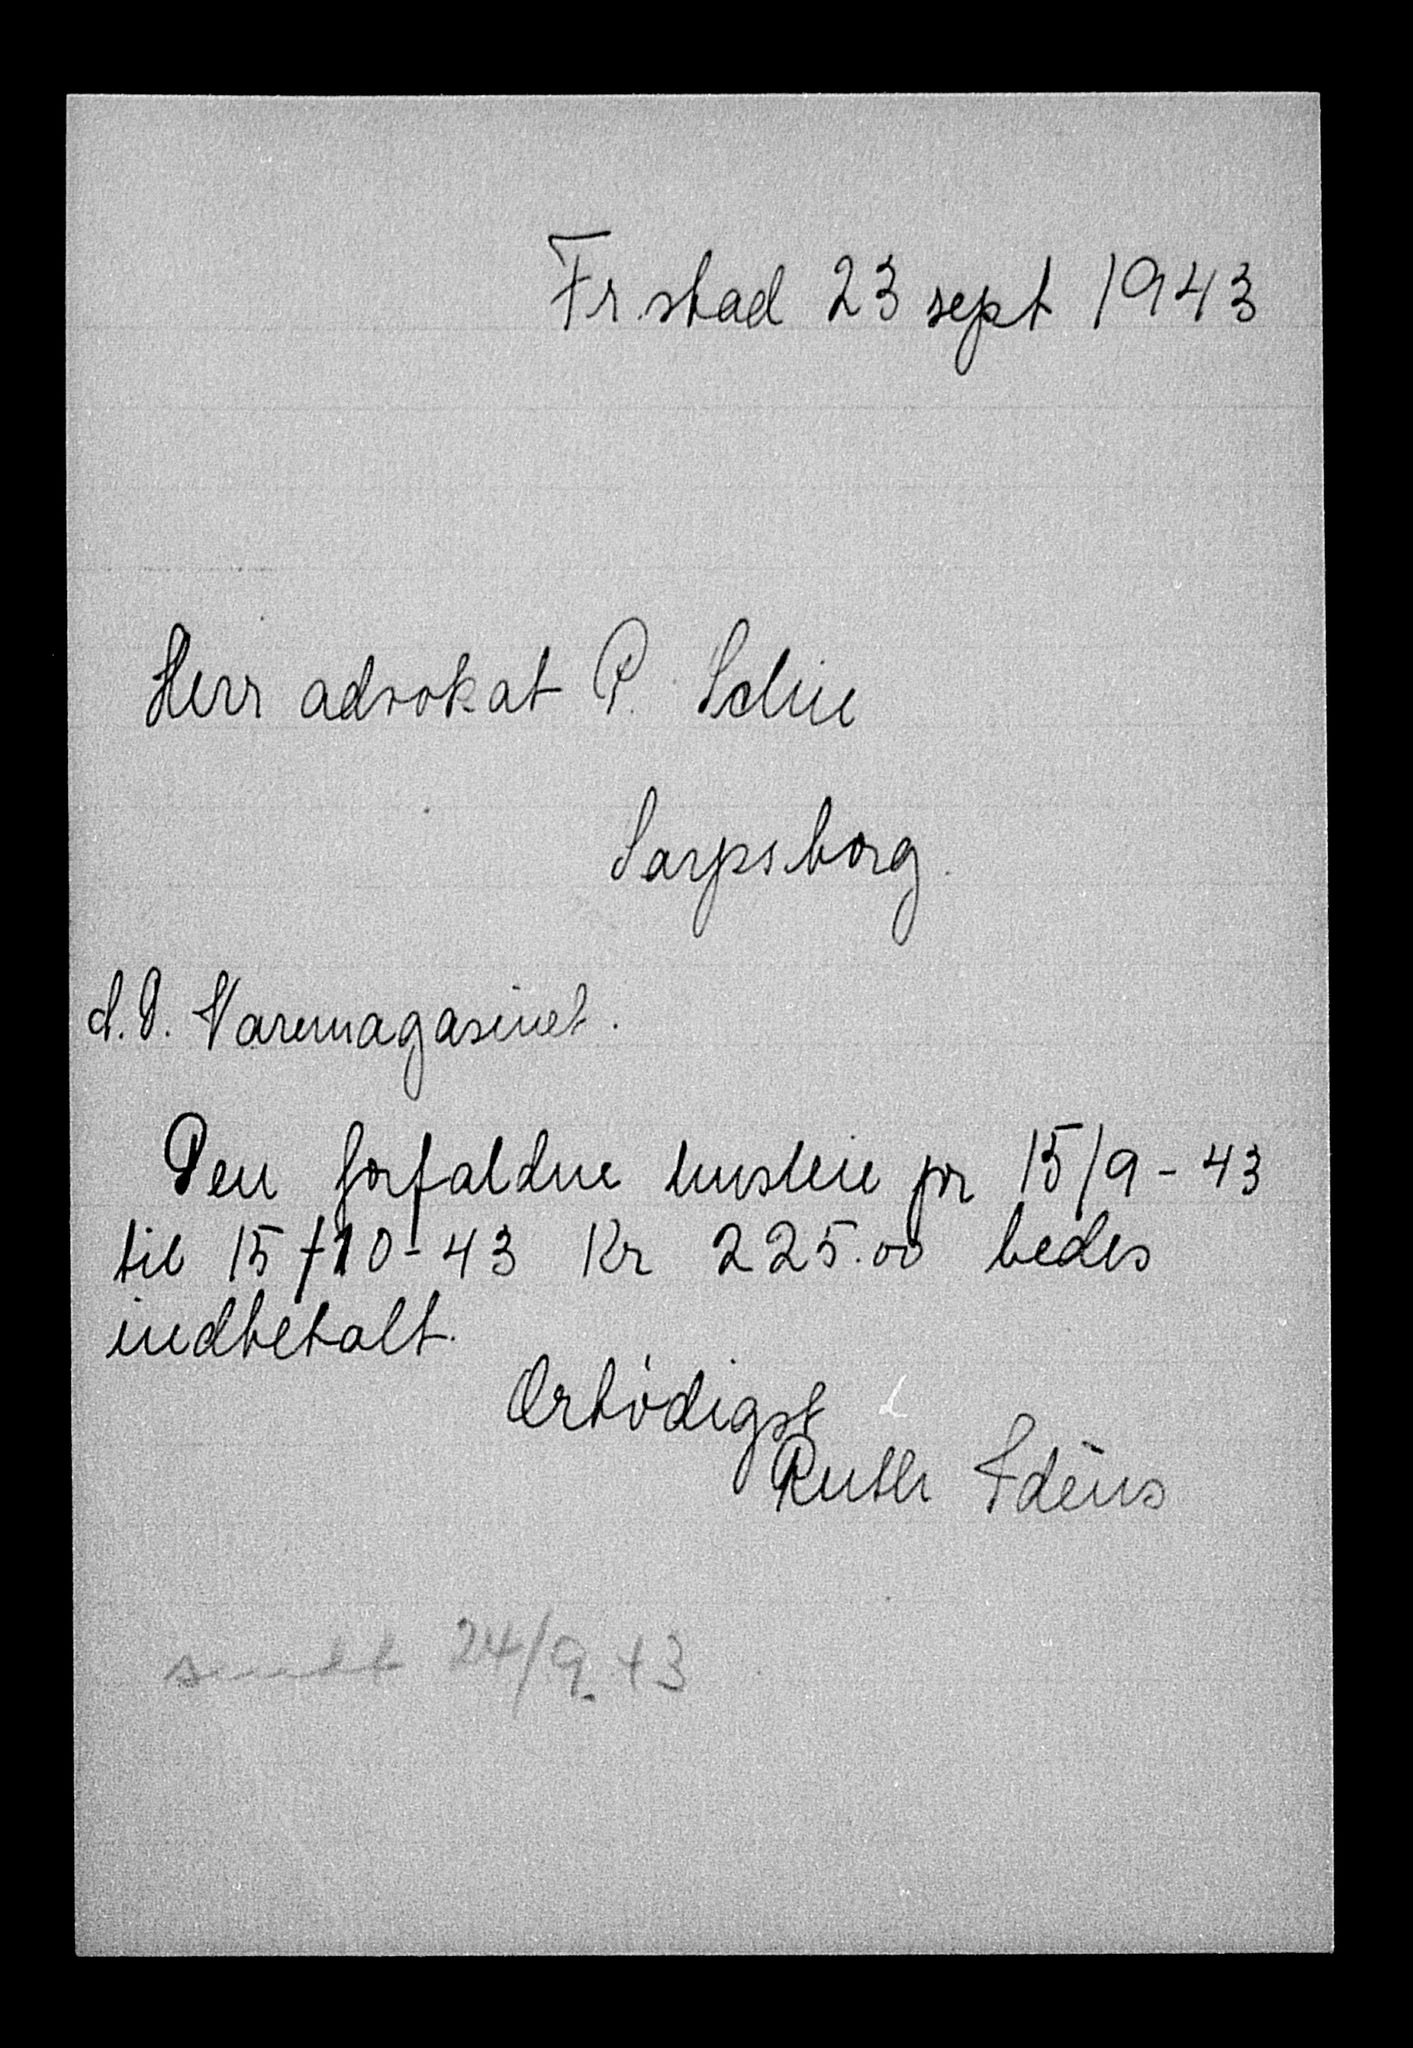 Fr.stad 23 sept 1943
Herr advokat P. Schie
Sarpsborg.
d.D. Varemagasinet.
Den forfaldne husleie pr 15/9-43
til 15/10-43 Kr 225.00 bedes
indbetalt.
Ærbødigst
Ruth
sendt 24/9.43